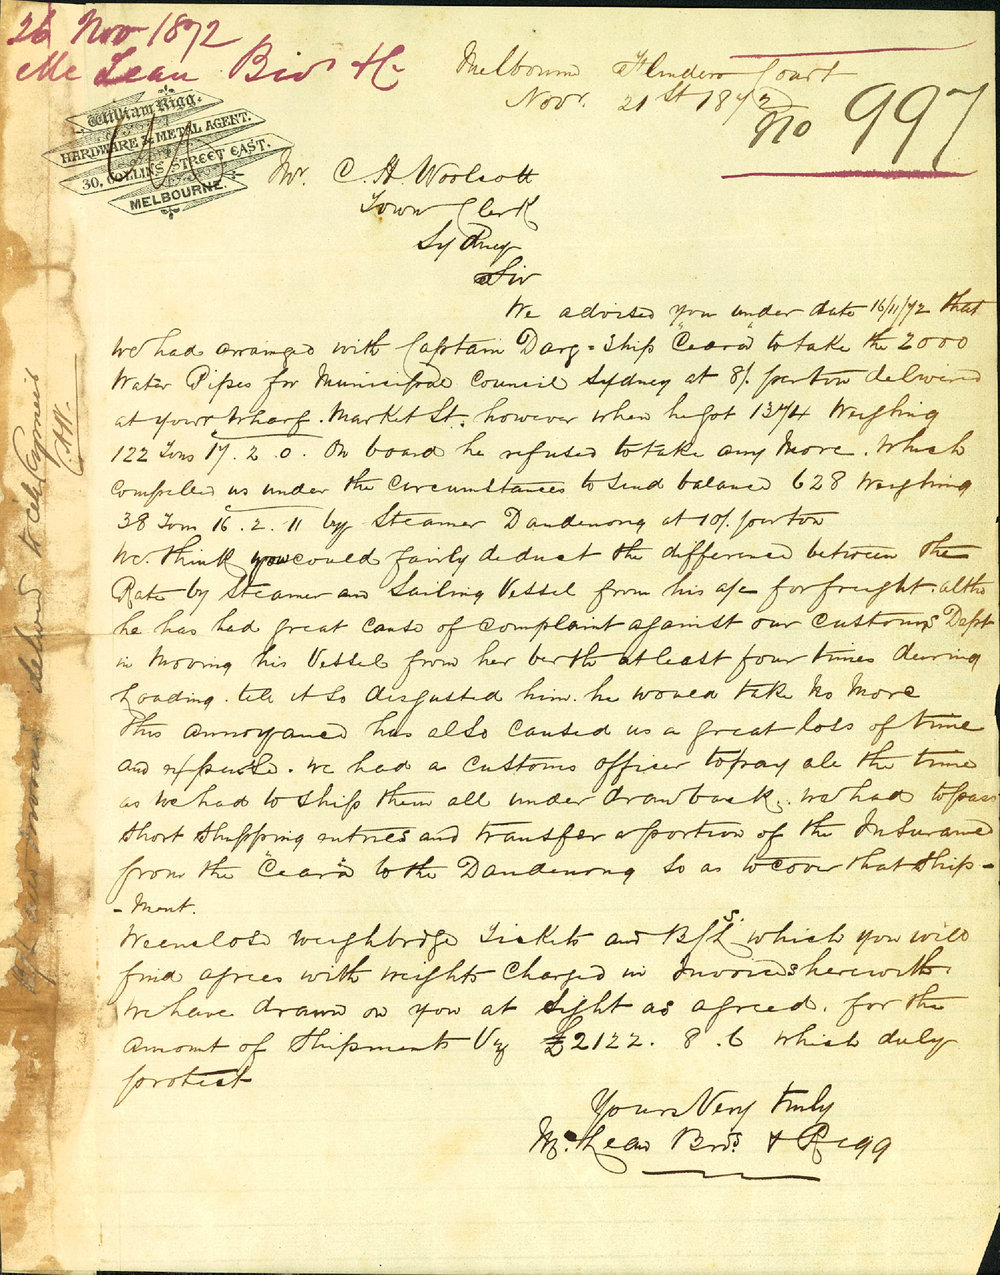 26 Nov 1872
Mc Lean Bros &c
Melbourne Flinders Court
Novr. 21st 1872
No 997
William Rigg.
HARDWARE & METAL AGENT.
30, COLLINS STREET EAST.
MELBOURNE.
Mr. C. H. Woolcott
Town Clerk
Sydney
Sir
We advised you under date 16/11/72 that
we had arranged with Captain Darg = Ship "Ceara" to take the 2000
Water Pipes for Municipal Council Sydney at 8/. per ton delivered
at your Wharf. Market St. however when he got 1374 Weighing
122 Tons 17. 2. 0. On board he refused to take any More. Which
Compelled us under the Circumstances to send balance 628 Weighing
38 Tons 16. 2. 11 by Steamer Dandenong at 10/. per ton
We think you could fairly deduct the difference between the
Rate by Steamer and Sailing Vessel from his a/c for freight. altho
he has had great cause of complaint against our Customs Dept
in Moving his Vessel from her berth at least four times during
Loading. till it so disgusted him. he would take No More
This annoyance has also caused us a great loss of time
and expense. we had a Customs officer to pay all the time
as we had to ship them all under drawback.. we had to pass
Short Shipping entries and transfer a portion of the Insurance
from the "Ceara" to the Dandenong so as to cover that Ship-
-Ment.
We enclose weighbridge Tickets and B/Ls. which you will
find agrees with weights Charged in Invoices herewith.
We have drawn on you at Sight as agreed. for the
amount of Shipments Viz £2122. 8. 6 which duly
protect
Yours Very truly
Mc Lean Bros. & Rigg
delivered to City Engineer
C.H.W.